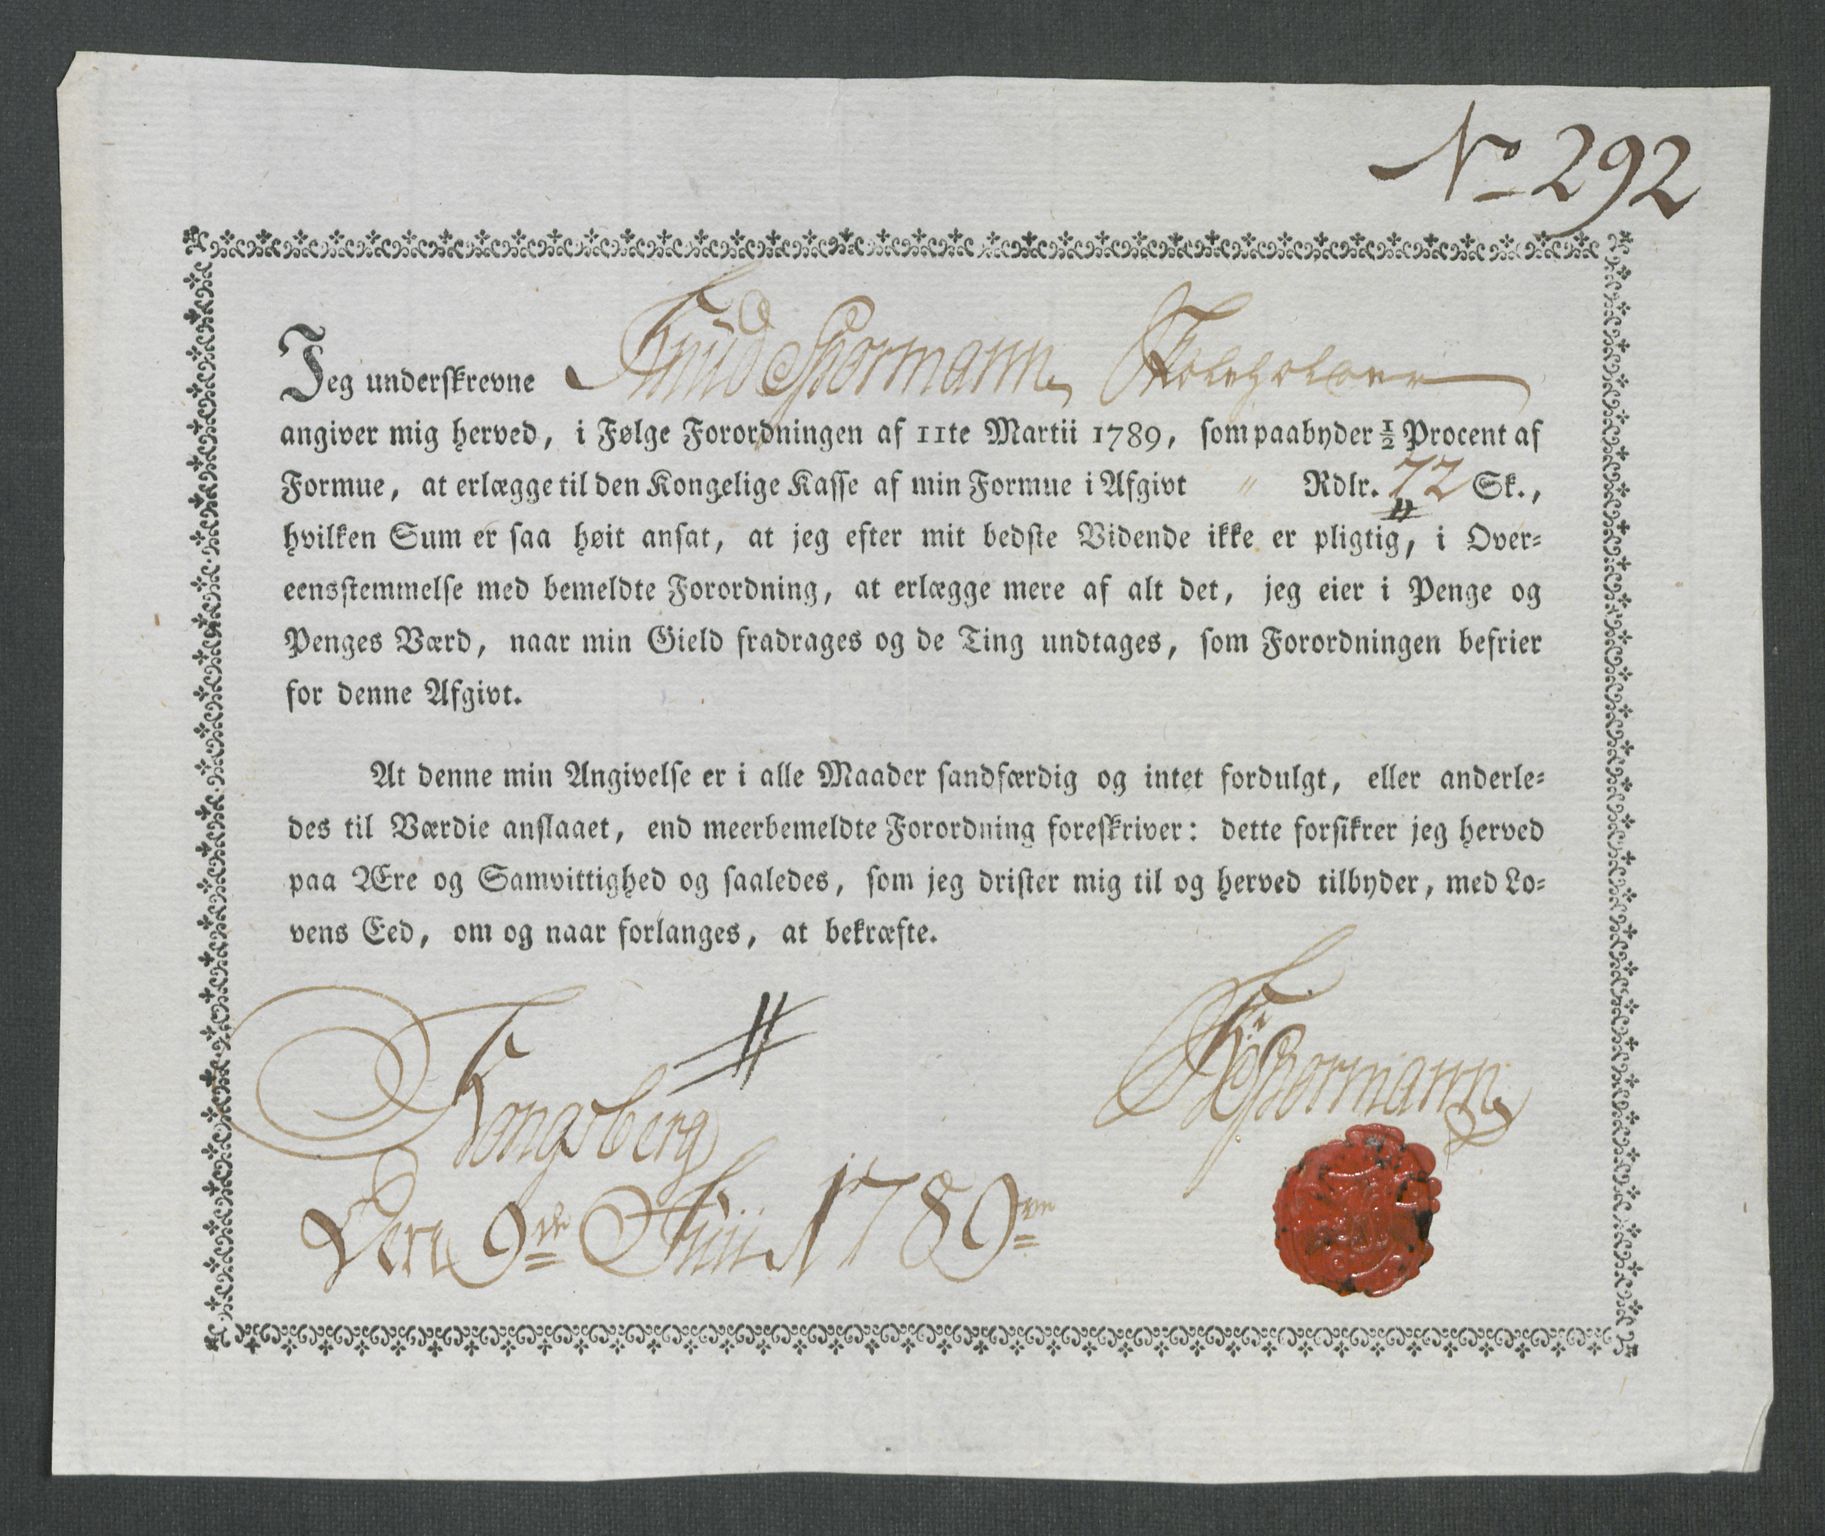 No 292
Jeg underskrevne Knud Spormann Skoleholder
angiver mig herved, i Følge Forordningen af 11te Martii 1789, som paabyder ½ Procent af
Formue, at erlægge til den Kongelige Kasse af min Formue i Afgivt " Rdlr. 72 Sk.,
hvilken Sum er saa høit ansat, at jeg efter mit bedste Vidende ikke er pligtig, i Over-
eensstemmelse med bemeldte Forordning, at erlægge mere af alt det, jeg eier i Penge og
Penges Værd, naar min Gield fradrages og de Ting undtages, som Forordningen befrier
for denne Afgivt.
At denne min Angivelse er i alle Maader sandfærdig og intet fordulgt, eller anderle-
des til Værdie anslaaet, end meerbemeldte Forordning foreskriver: dette forsikrer jeg herved
paa Ære og Samvittighed og saaledes, som jeg drister mig til og herved tilbyder, med Lo-
vens Eed, om og naar forlanges, at bekræfte.
Kongsberg
Den 9de Junii 1789
K Spormann